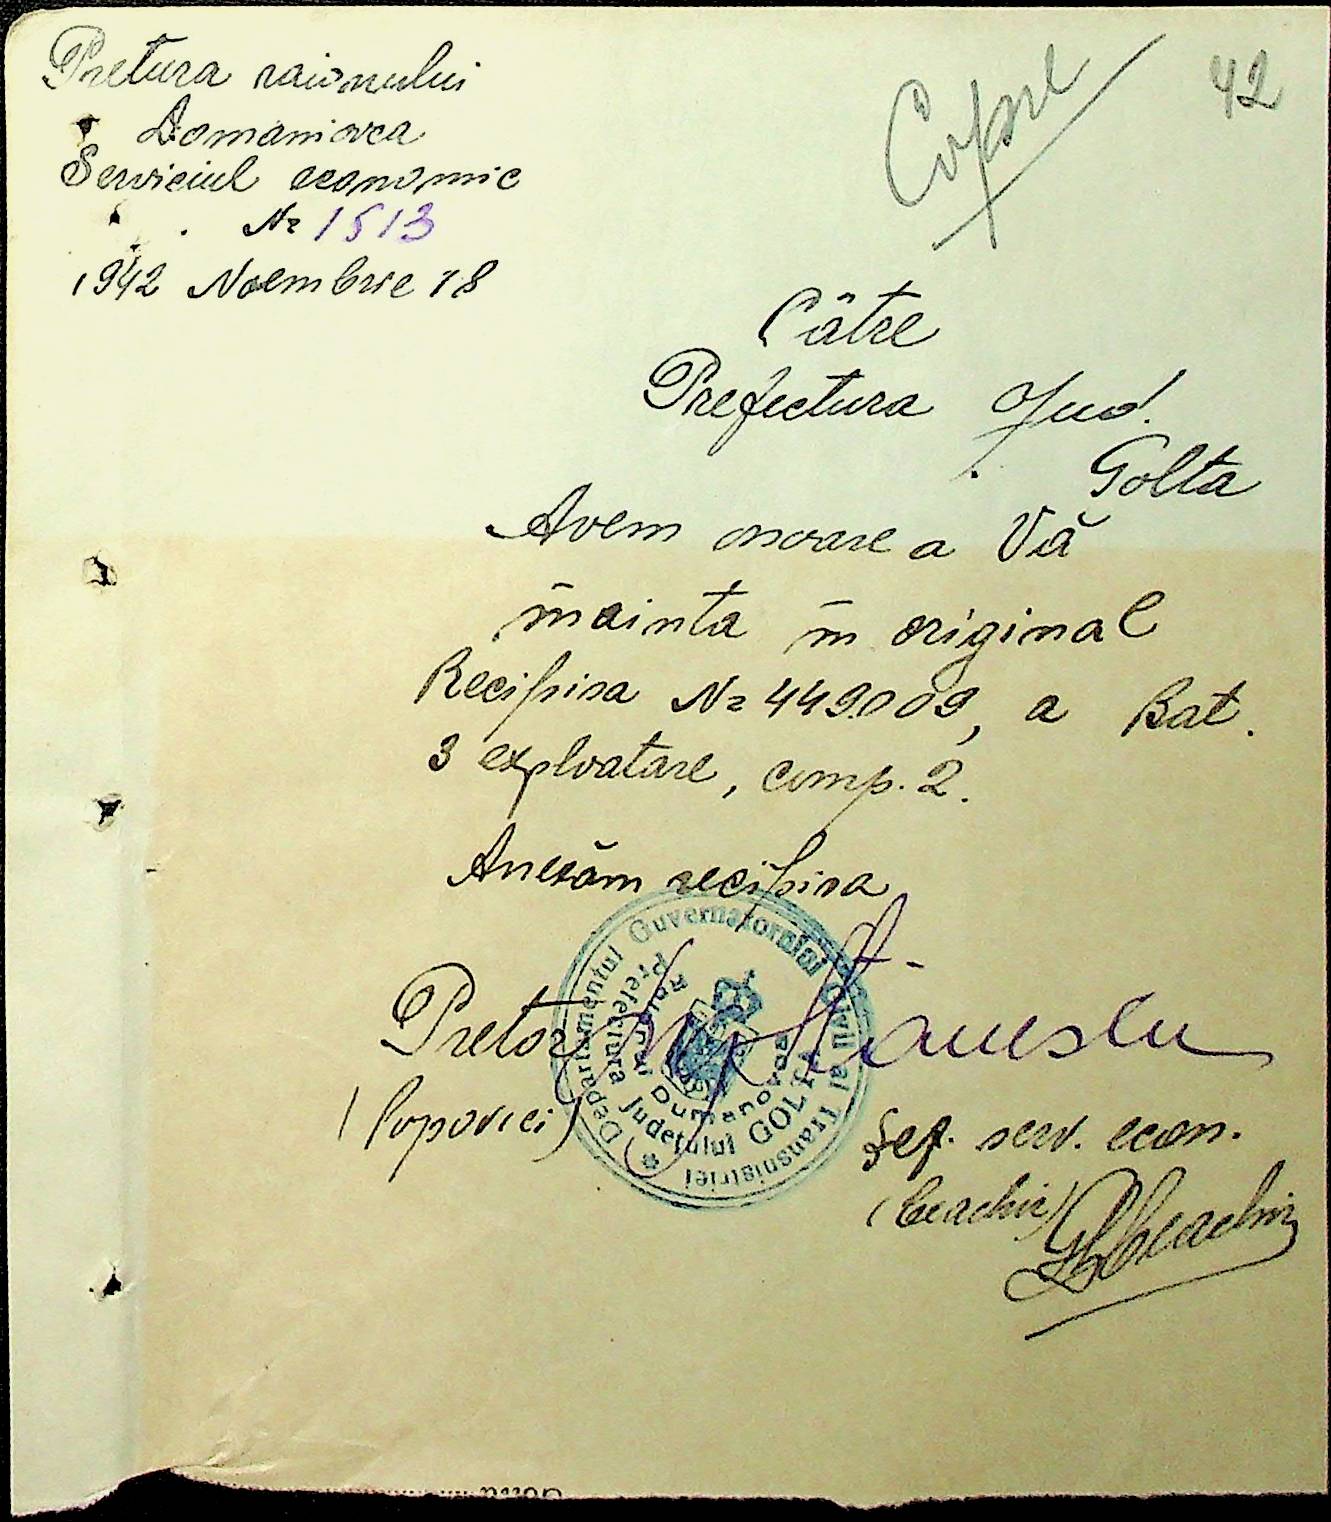 Pretura raionului
Domaniovca
Serviciul economic
Nr 1513
1942 Noembrie 18
42
Către
Prefectura Jud.
Golta
Avem onoare a Vă
înainta în original
Recipisa Nr 449.009, a Bat.
3 exploatare, comp. 2.
Anexăm recipisa
Pretor
(Popovici)
Stănescu
Departamentul Guvernatorului Civil al Transnistriei
Prefectura Județului GOLTA
Raionul Dumanovca
Șef. serv. econ.